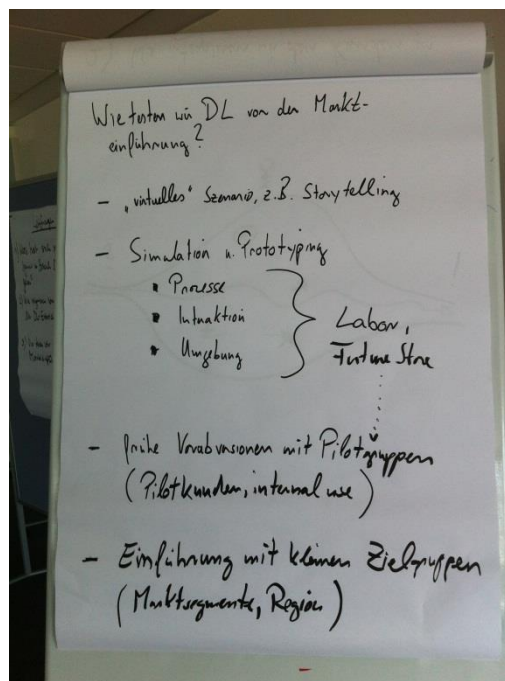 Wie testen wir DL vor der Markt-
einführung?
- „virtuelles" Szenario, z.B. Storytelling
- Simulation u. Prototyping
▪ Prozesse
▪ Interaktion
▪ Umgebung
Labor,
Future Store
- frühe Vorabversionen mit Pilotgruppen
(Pilotkunden, internal use)
- Einführung mit kleinen Zielgruppen
(Marktsegmente, Region)